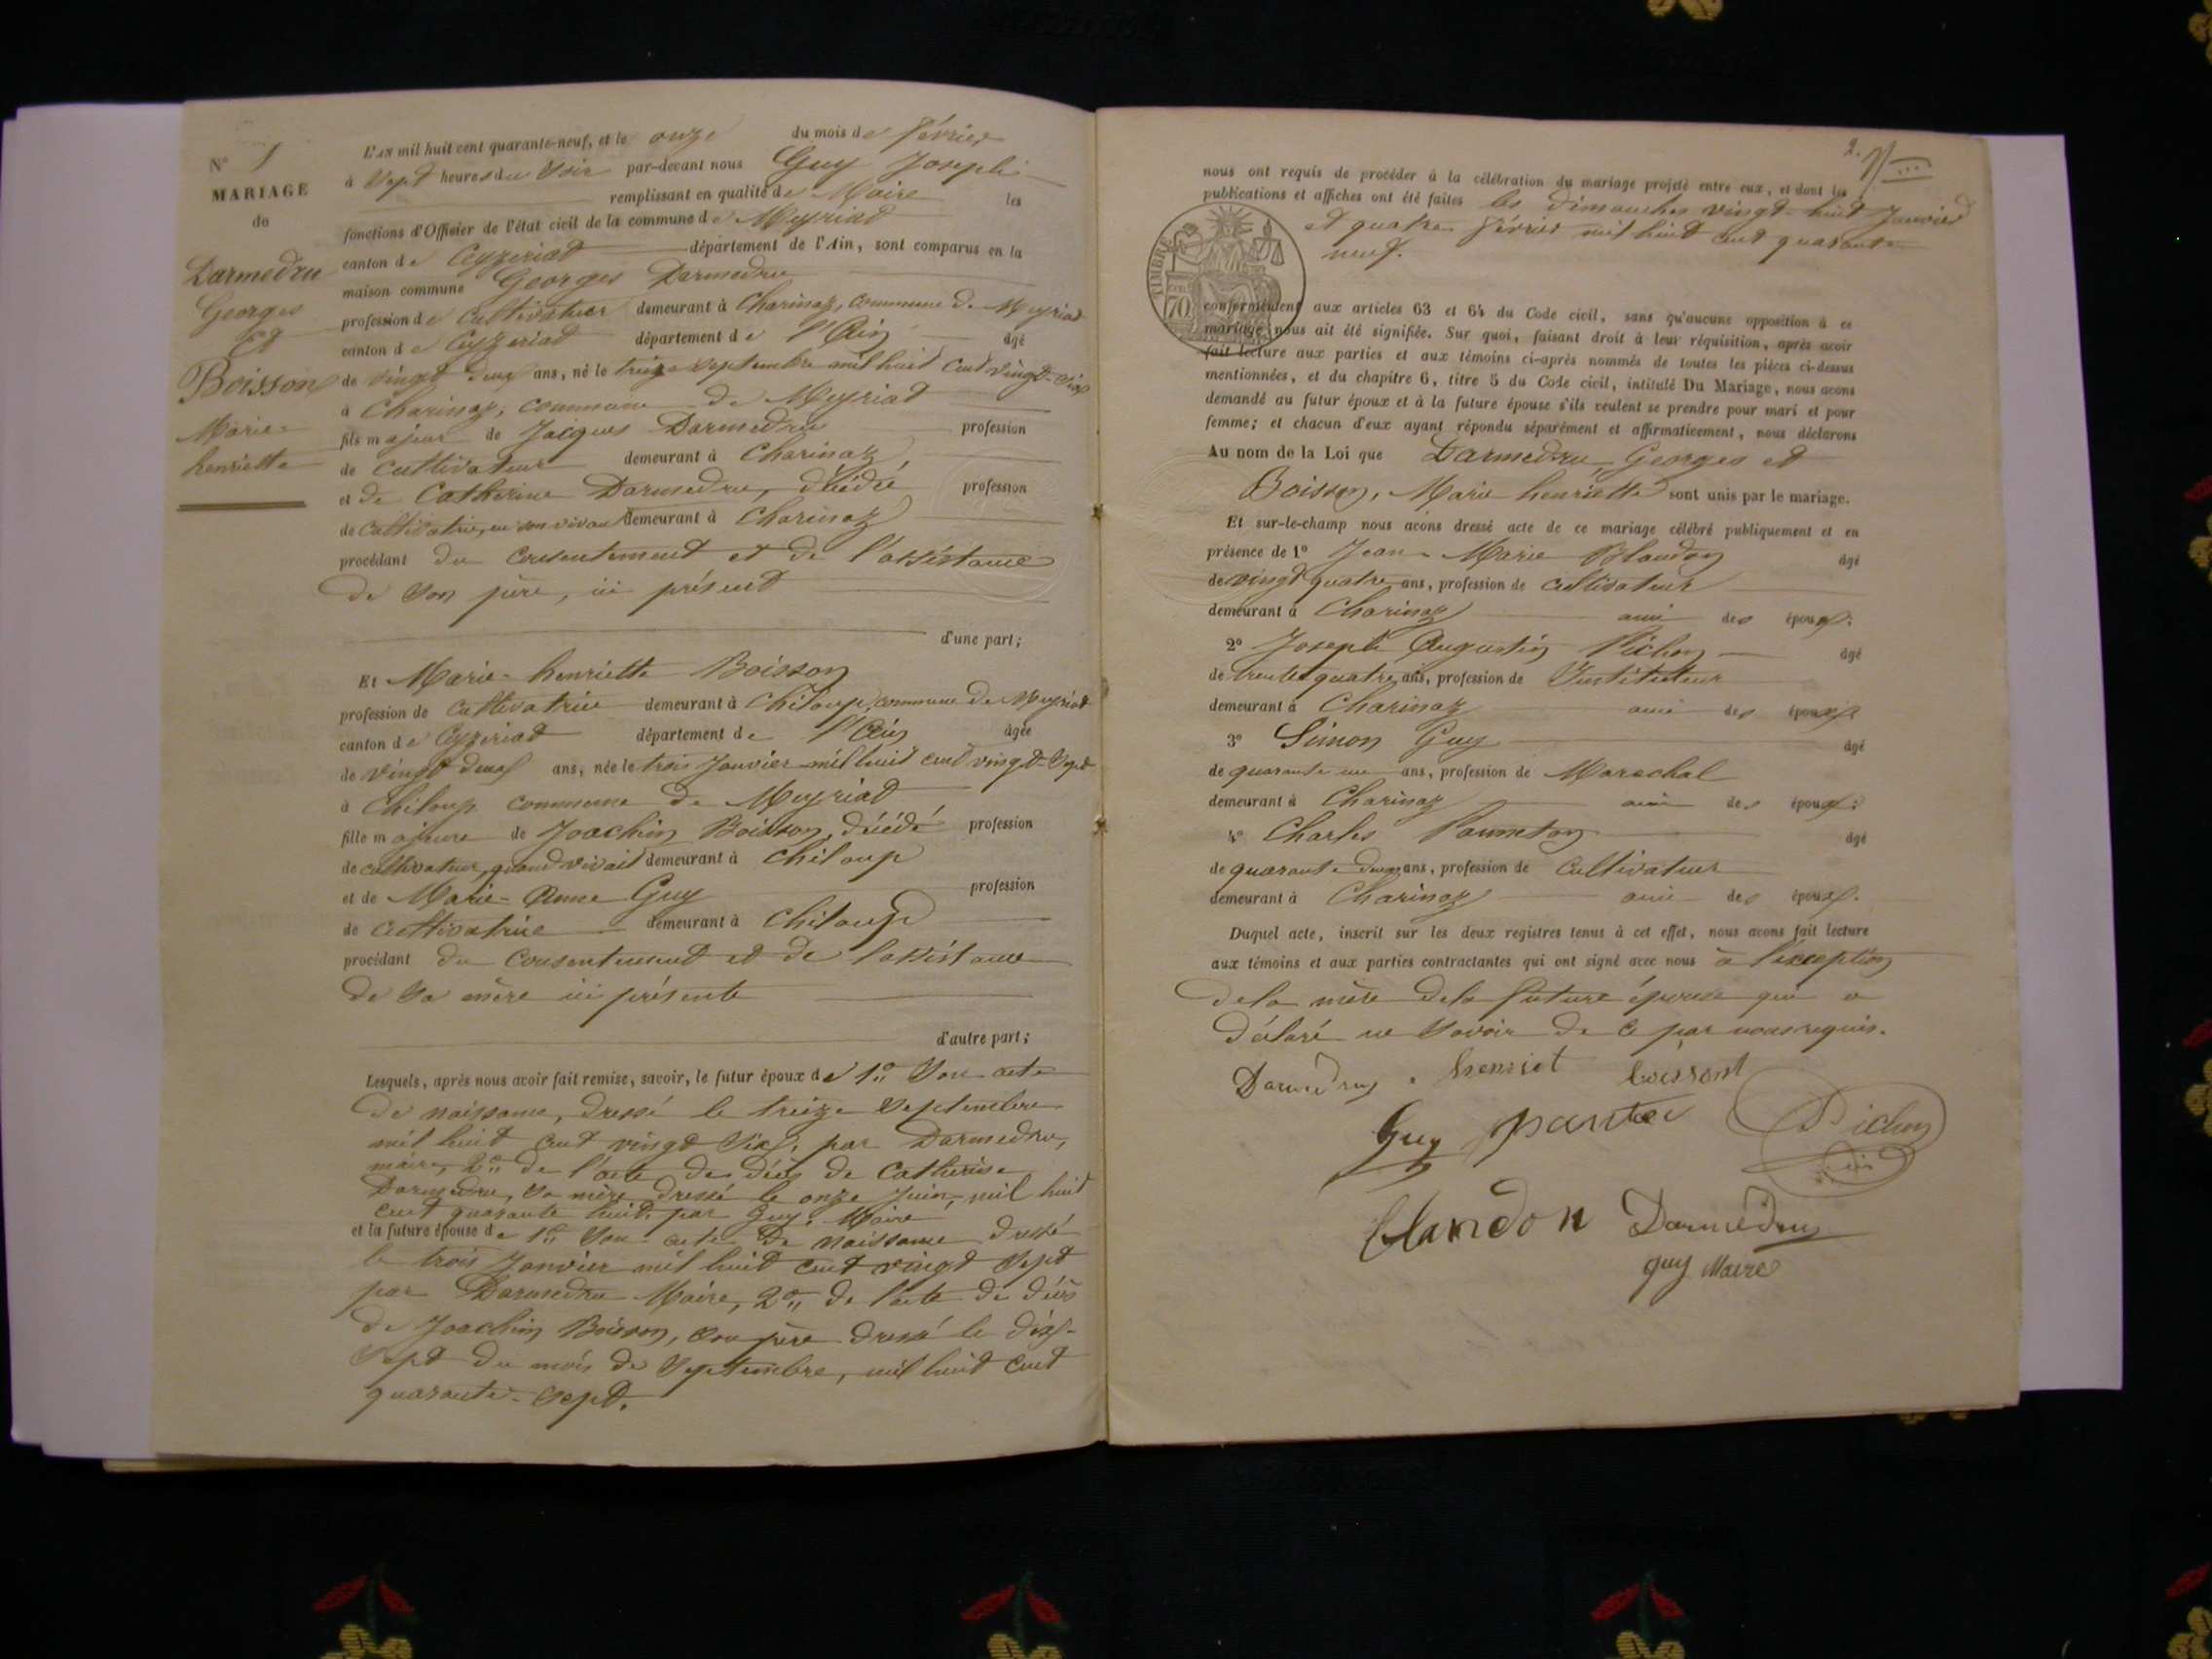 N° 1
MARIAGE
de
Darmedru
Georges
Et
Boisson
Marie-
henriette
L'AN mil huit cent quarante-neuf, et le onze du mois de février
à Sept heures du Soir par-devant nous Guy Joseph
remplissant en qualité de Maire les
fonctions d'Officier de l'état civil de la commune de Meyriat
canton de Ceyzeriat département de l'Ain, sont comparus en la
maison commune Georges Darmedru
profession de Cultivateur demeurant à Charinaz, commune de Meyriat
canton de Ceyzeriat département de l'Ain âgé
de vingt deux ans, né le treize Septembre mil huit cent vingt-Six
à Charinaz, commune de Meyriat
fils majeur de Jacques Darmedru profession
de cultivateur demeurant à Charinaz
et de Catherine Darmedru, décédée profession
de Cultivatrice, en son vivant demeurant à Charinaz
procédant du consentement et de l'assistance
de Son père, ici présent
d'une part;
Et Marie-henriette Boisson
profession de cultivatrice demeurant à Chiloup, commune de Meyriat
canton de Ceyzeriat département de l'Ain âgée
de vingt deux ans, née le trois Janvier mil huit cent vingt-Sept
à Chiloup commune de Meyriat
fille majeure de Joachim Boisson, décédé profession
de cultivateur, quand vivait demeurant à Chiloup
et de Marie-Anne Guy profession
de Cultivatrice demeurant à Chiloup
procédant du Consentement et de l'assistance
de Sa mère ici présente
d'autre part;
Lesquels, après nous avoir fait remise, savoir, le futur époux de 1° Son acte
de naissance, dressé le treize Septembre
mil huit cent vingt Six, par Darmedru,
maire, 2° de l'acte de décès de Catherine
Darmedru, Sa mère dressé le onze Juin, mil huit
cent quarante huit, par Guy, Maire
et la future épouse de 1° Son acte de naissance dressé
le trois Janvier mil huit cent vingt Sept
par Darmedru Maire, 2° de l'acte de décès
de Joachim Boisson, Son père dressé le dix-
Sept du mois de Septembre, mil huit cent
quarante-Sept.
2.
nous ont requis de procéder à la célébration du mariage projeté entre eux, et dont les
publications et affiches ont été faites les dimanches vingt-huit Janvier
et quatre février mil huit cent quarante
neuf.
TIMBRE
70
conformément aux articles 63 et 64 du Code civil, sans qu'aucune opposition à ce
mariage nous ait été signifiée. Sur quoi, faisant droit à leur réquisition, après avoir
fait lecture aux parties et aux témoins ci-après nommés de toutes les pièces ci-dessus
mentionnées, et du chapitre 6, titre 5 du Code civil, intitulé Du Mariage, nous avons
demandé au futur époux et à la future épouse s'ils veulent se prendre pour mari et pour
femme; et chacun d'eux ayant répondu séparément et affirmativement, nous déclarons
Au nom de la Loi que Darmedru, Georges et
Boisson, Marie henriette sont unis par le mariage.
Et sur-le-champ nous avons dressé acte de ce mariage célébré publiquement et en
présence de 1° Jean-Marie Blandon âgé
de vingt quatre ans, profession de cultivateur
demeurant à Charinaz ami des époux;
2° Joseph Augustin Pichon âgé
de trente quatre ans, profession de Instituteur
demeurant à Charinaz ami des époux;
3° Simon Guy âgé
de quarante un ans, profession de Marechal
demeurant à Charinaz ami des époux;
4° Charles âgé
de quarante deux ans, profession de Cultivateur
demeurant à Charinaz ami des époux.
Duquel acte, inscrit sur les deux registres tenus à cet effet, nous avons fait lecture
aux témoins et aux parties contractantes qui ont signé avec nous à l'exception
de la mère de la future épouse qui a
déclaré ne Savoir de ce par nous requis.
Darmedru henriet boissont
Guy Pichon
blandon Darmedru
guy Maire